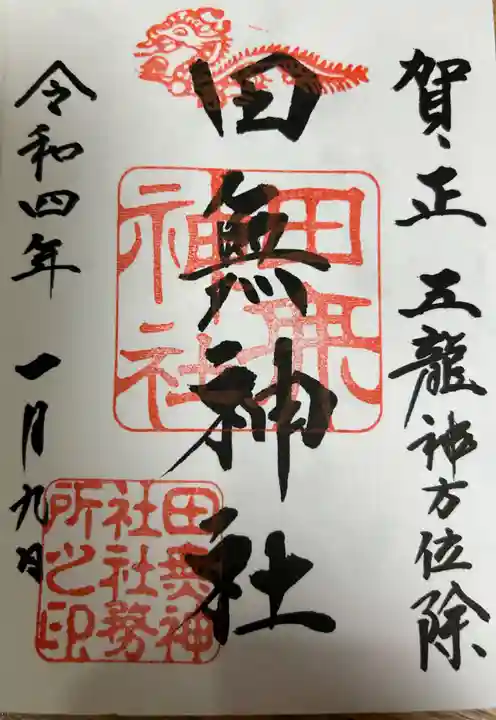 賀正 五龍神方位除
田無神社
令和四年 一月九日
田無
神社
田無神
社社務
所之印